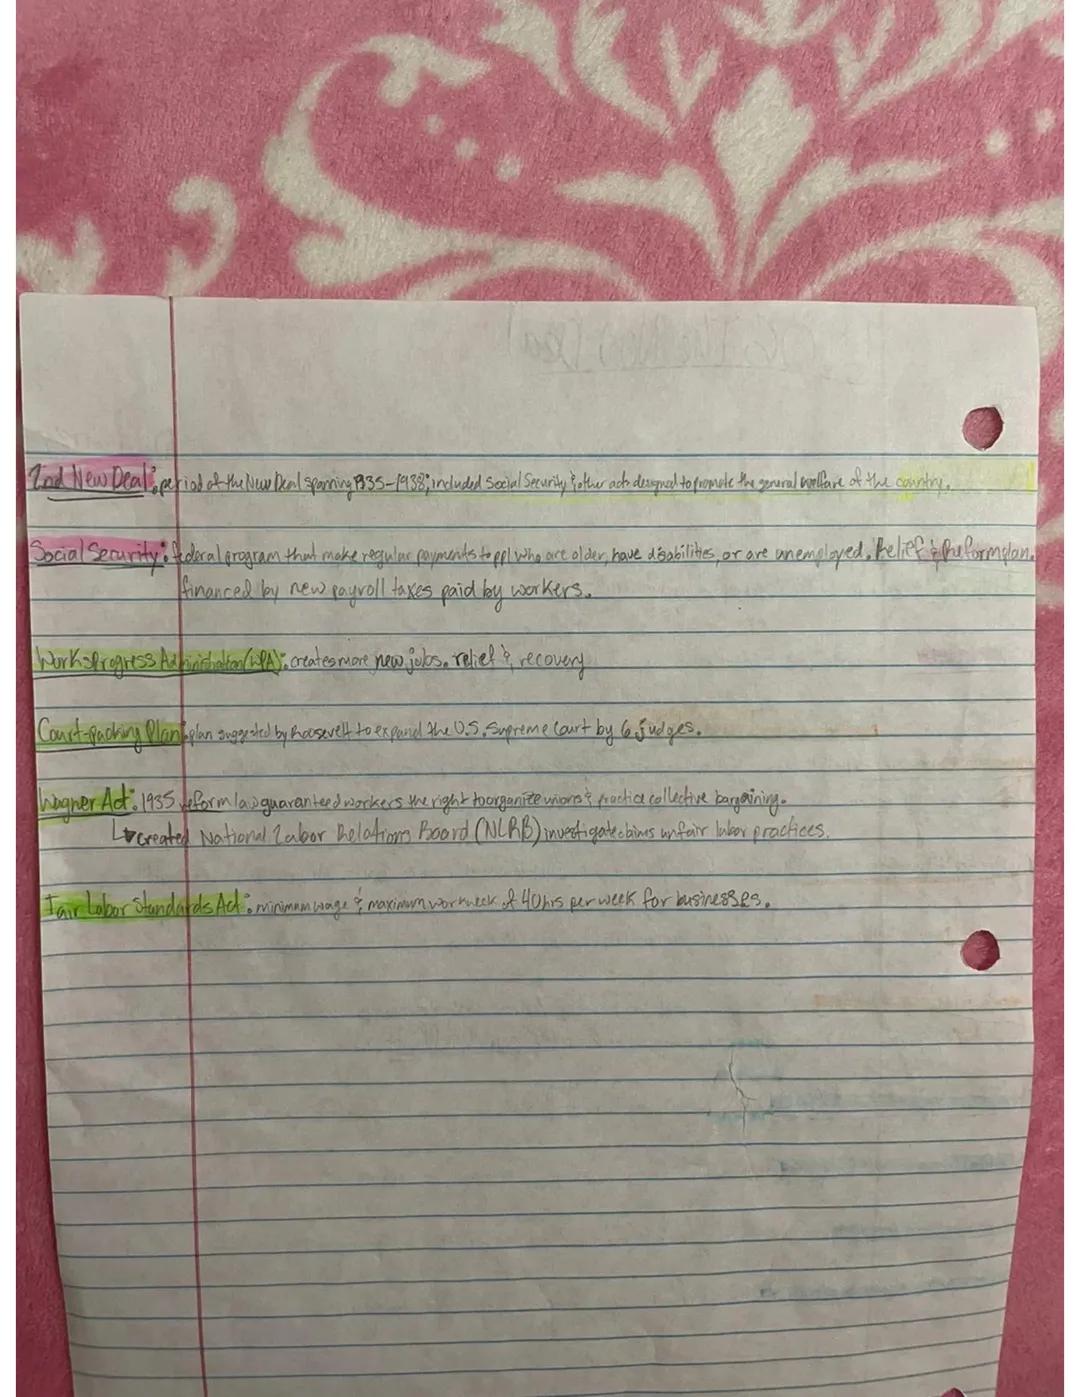 2nd New Deal: period of the New Deal spanning 1935-1938; included Social Security & other acts designed to promote the general welfare of the country.
Social Security: federal program that make regular payments to ppl who are older, have disabilities, or are unemployed. Relief & Reform plan.
financed by new payroll taxes paid by workers.
Works Progress Administration (WPA): creates more new jobs. relief & recovery
Court-packing Plan: plan suggested by Roosevelt to expand the U.S. Supreme Court by 6 judges.
Wagner Act: 1935 reform law guaranteed workers the right to organize unions & practice collective bargaining.
↳ created National Labor Relations Board (NLRB) investigate claims unfair labor practices.
Fair Labor Standards Act: minimum wage & maximum workweek of 40 hrs per week for businesses.